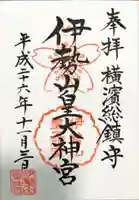 奉拝 横濱総鎮守
伊勢山皇大神宮
平成二十六年十一月三日